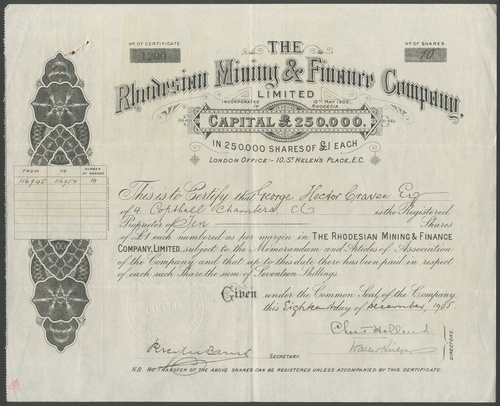 Nº OF CERTIFICATE
1200
Nº OF SHARES
10
THE
Rhodesian Mining & Finance Company,
LIMITED
INCORPORATED IN RHODESIA 15TH MAY 1905.
CAPITAL £250,000.
IN 250,000 SHARES OF £1 EACH
LONDON OFFICE:- 10, ST HELEN'S PLACE, E.C.
FROM TO NUMBER OF SHARES
116945 116954 10
This is to Certify that George Hector Craven Esq
of 4 Copthall Chambers E.C. is the Registered
Proprietor of Ten Shares
of £1 each numbered as per margin in THE RHODESIAN MINING & FINANCE
COMPANY, LIMITED, subject to the Memorandum and Articles of Association
of the Company and that up to this date there has been paid in respect
of each such Share the sum of Seventeen Shillings.
Given under the Common Seal of the Company
this Eighteenth day of December, 1905
Chas. Holland
SECRETARY.
DIRECTORS.
N.B. NO TRANSFER OF THE ABOVE SHARES CAN BE REGISTERED UNLESS ACCOMPANIED BY THIS CERTIFICATE.